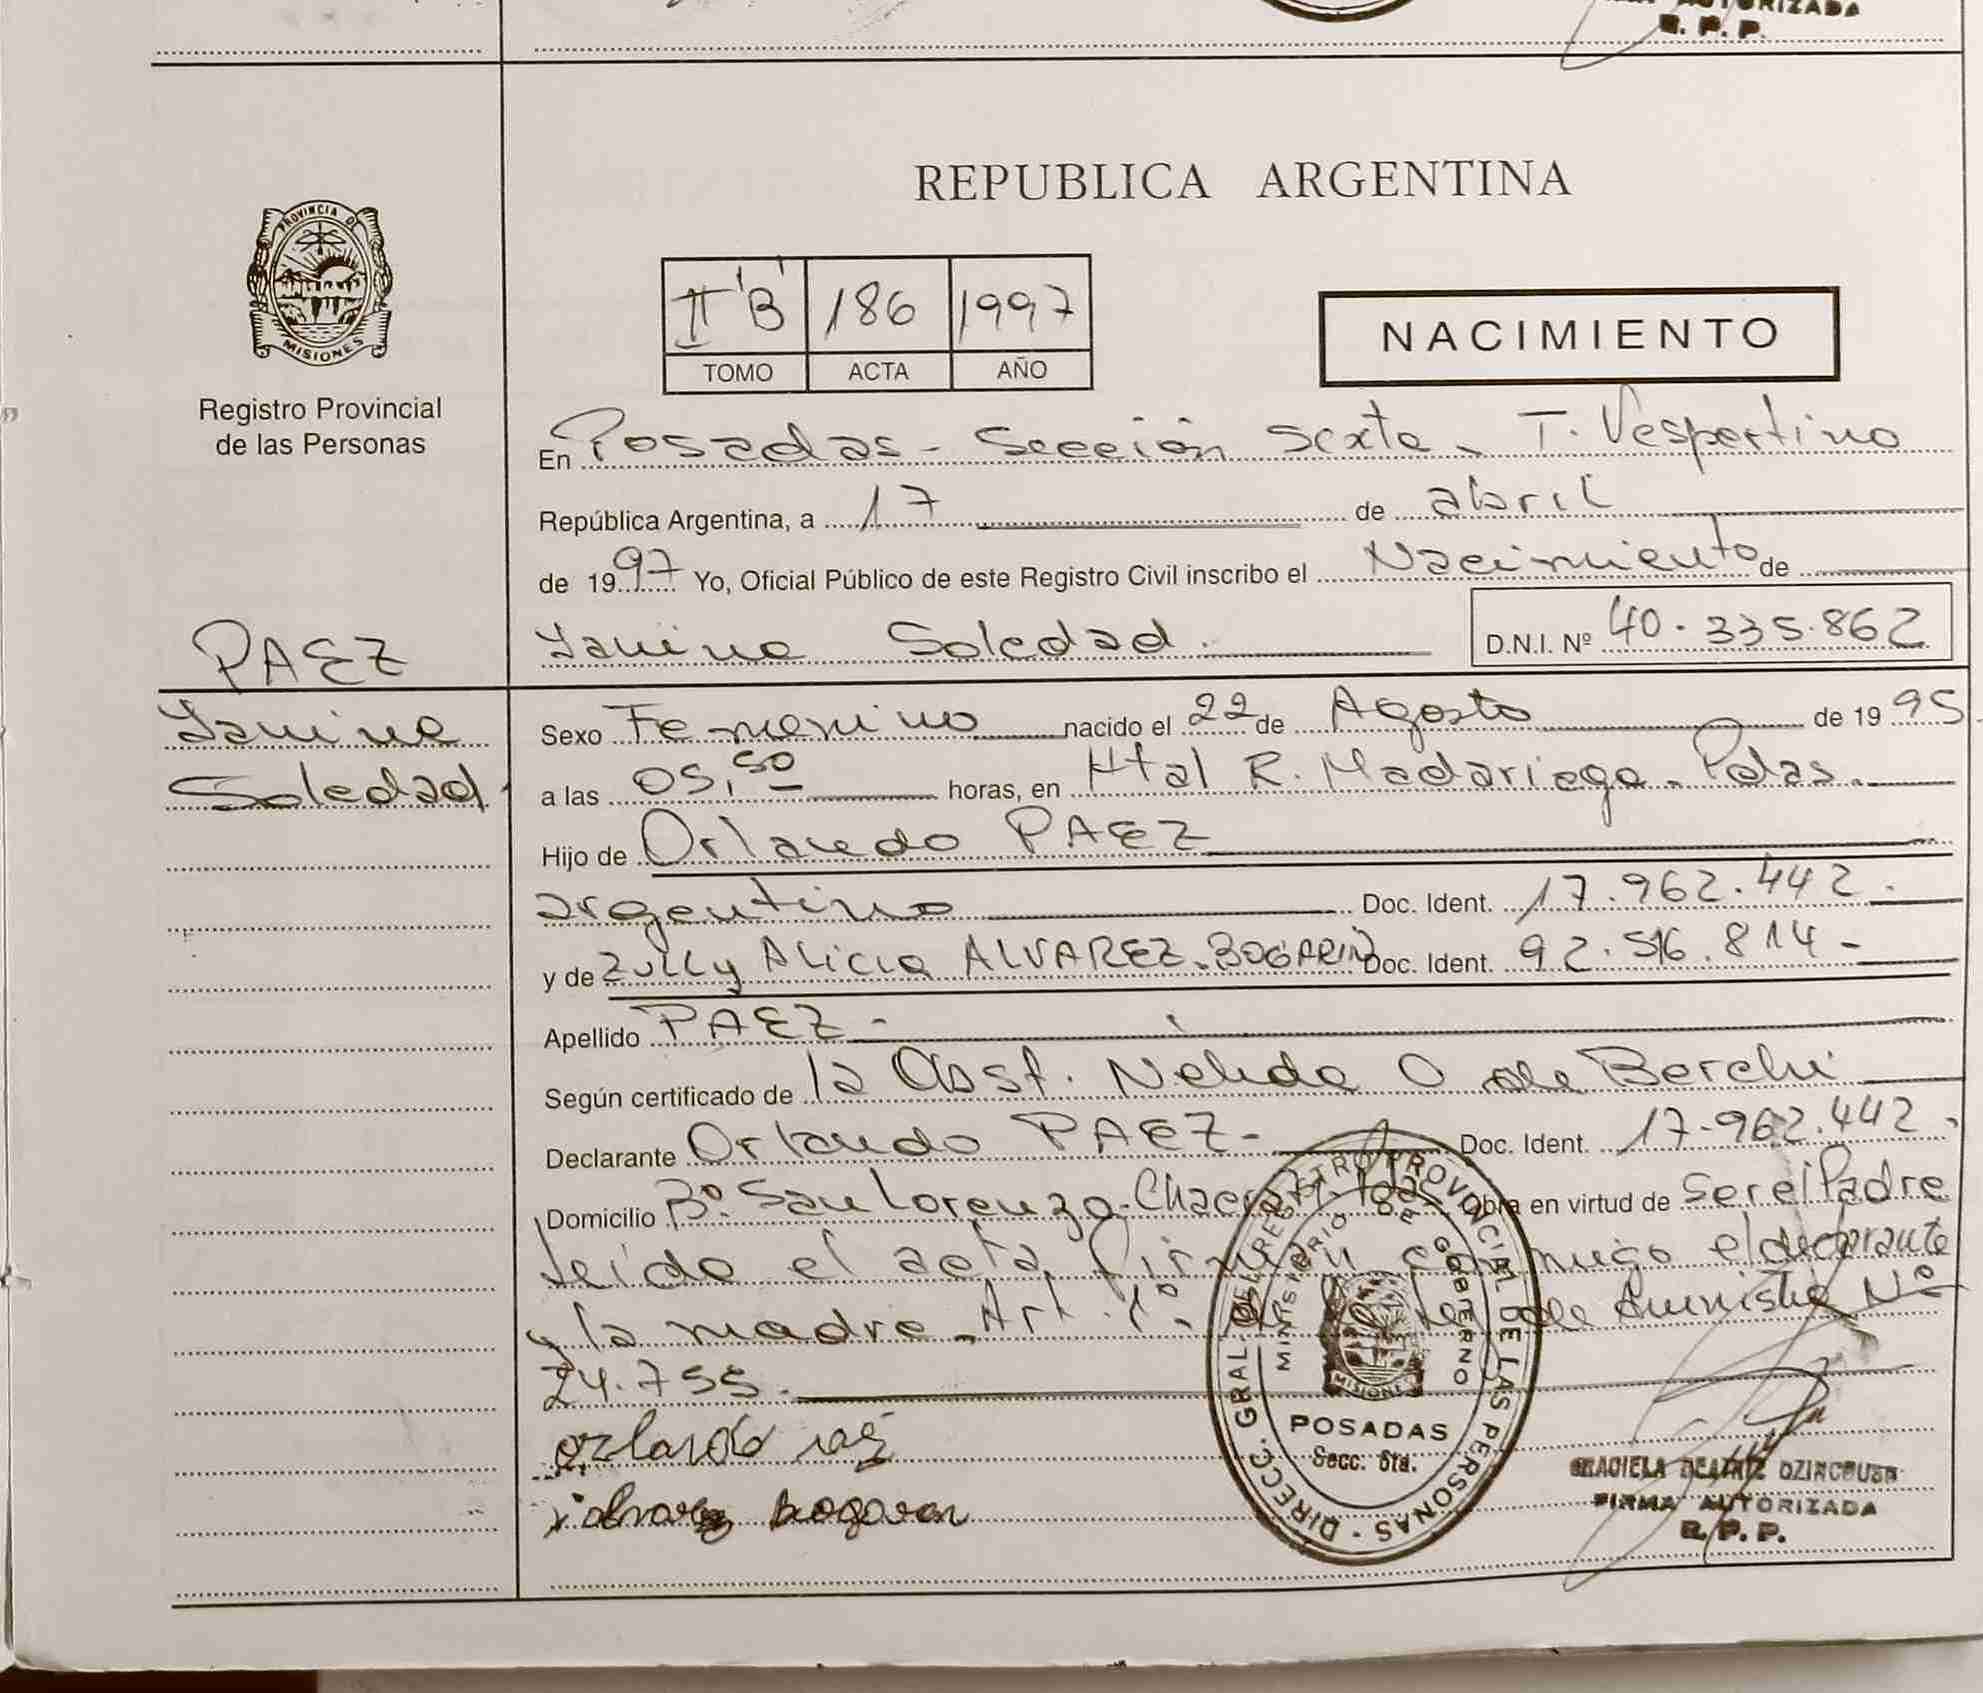 AUTORIZADA
R. P. P.
REPUBLICA ARGENTINA
PROVINCIA DE
MISIONES
Registro Provincial
de las Personas
II "B" 186 1997
TOMO ACTA AÑO
NACIMIENTO
En Posadas - Sección Sexta - T. Vespertino
República Argentina, a 17 de abril
de 1997 Yo, Oficial Público de este Registro Civil inscribo el Nacimiento de
Yanina Soledad. D.N.I. Nº 40.335.862
PAEZ
Yanina
Soledad
Sexo Femenino nacido el 22 de Agosto de 1995
a las 05,50 horas, en Htal R. Madariaga - Pdas.
Hijo de Orlando PAEZ
argentino Doc. Ident. 17.962.442.
y de Zully Alicia ALVAREZ BOGARIN Doc. Ident. 92.516.814-
Apellido PAEZ-
Según certificado de la Obst. Nelida O de Berchi
Declarante Orlando PAEZ- Doc. Ident. 17-962.442.
Domicilio Bº. San Lorenzo - Obra en virtud de Ser el Padre
leido el acta, firman conmigo el declarante
y la madre. Art. 1º. de la Ley de Amnistia Nº
24.755.
orlando
bogarin
DIRECC. GRAL. DEL REGISTRO PROVINCIAL DE LAS PERSONAS
MINISTERIO DE GOBIERNO
MISIONES
POSADAS
Secc. 6ta.
GRACIELA BEATRIZ
FIRMA AUTORIZADA
R. P. P.